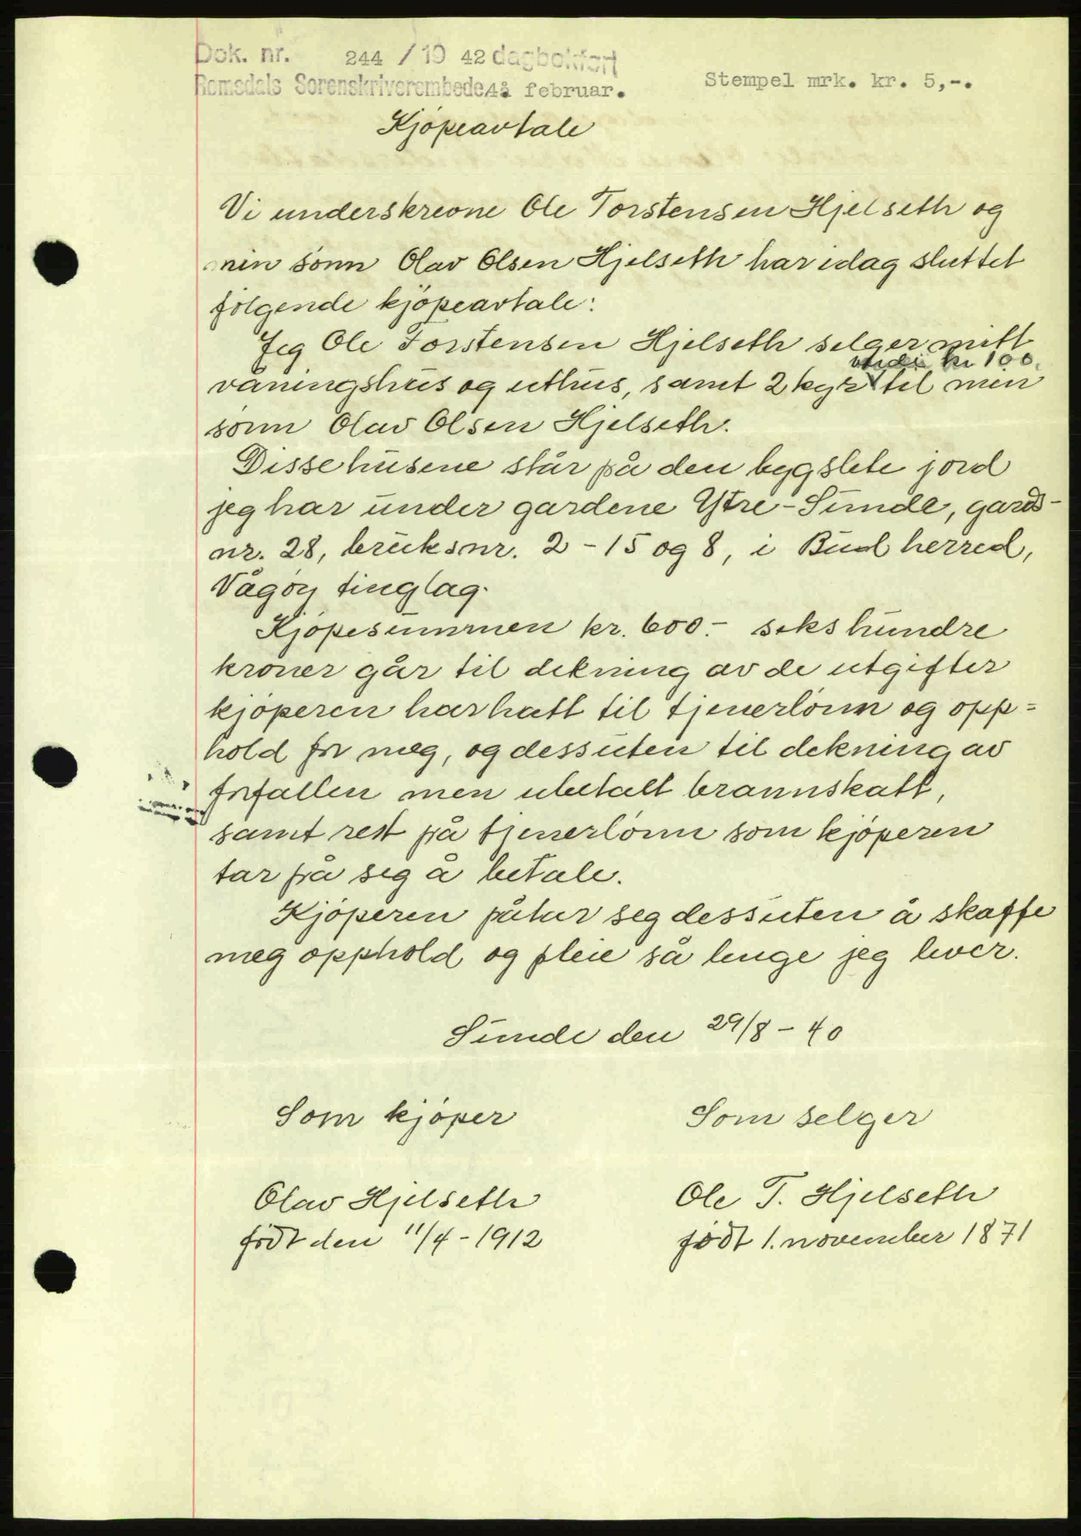 Dok. nr. 244 / 19 42 dagbokført
Romsdals Sorenskriverembede februar.
Stempel mrk. kr. 5,-.
Kjöpeavtale
Vi underskrevne Ole Torstensen Hjelseth og
min sönn Olav Olsen Hjelseth har idag sluttet
fölgende kjöpeavtale:
Jeg Ole Torstensen Hjelseth selger mitt
verdi kr 100.
våningshus og uthus, samt 2 kyr til min
sönn Olav Olsen Hjelseth.
Disse husene står på den bygslete jord
jeg har under gardene Ytre-Sunde, gards-
nr. 28, bruksnr. 2 - 15 og 8, i Bud herred,
Vågöy tinglag.
Kjöpesummen kr. 600.- sekshundre
kroner går til dekning av de utgifter
kjöperen har hatt til tjenerlönn og opp=
hold for meg, og dessuten til dekning av
forfallen men ubetalt brannskatt,
samt rest på tjenerlönn som kjöperen
tar på seg å betale.
Kjöperen påtar seg dessuten å skaffe
meg opphold og pleie så lenge jeg lever.
Sunde den 29/8 - 40
Som kjöper
Som selger
Olav Hjelseth
Ole T. Hjelseth
födt den 11/4 - 1912
födt 1. november 1871